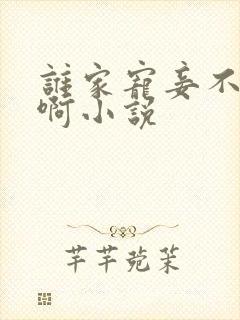 誰家寵妾不
啊小說
芊芊菀茉